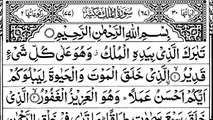 سُورَةُ الْمُلْكِ مَكِّيَّةٌ
بِسْمِ اللّٰهِ الرَّحْمٰنِ الرَّحِيْمِ
تَبٰرَكَ الَّذِيْ بِيَدِهِ الْمُلْكُ وَهُوَ عَلٰى كُلِّ شَيْءٍ
قَدِيْرُ الَّذِيْ خَلَقَ الْمَوْتَ وَالْحَيٰوةَ لِيَبْلُوَكُمْ
اَيُّكُمْ اَحْسَنُ عَمَلًا وَهُوَ الْعَزِيْزُ الْغَفُوْرُ الَّذِيْ